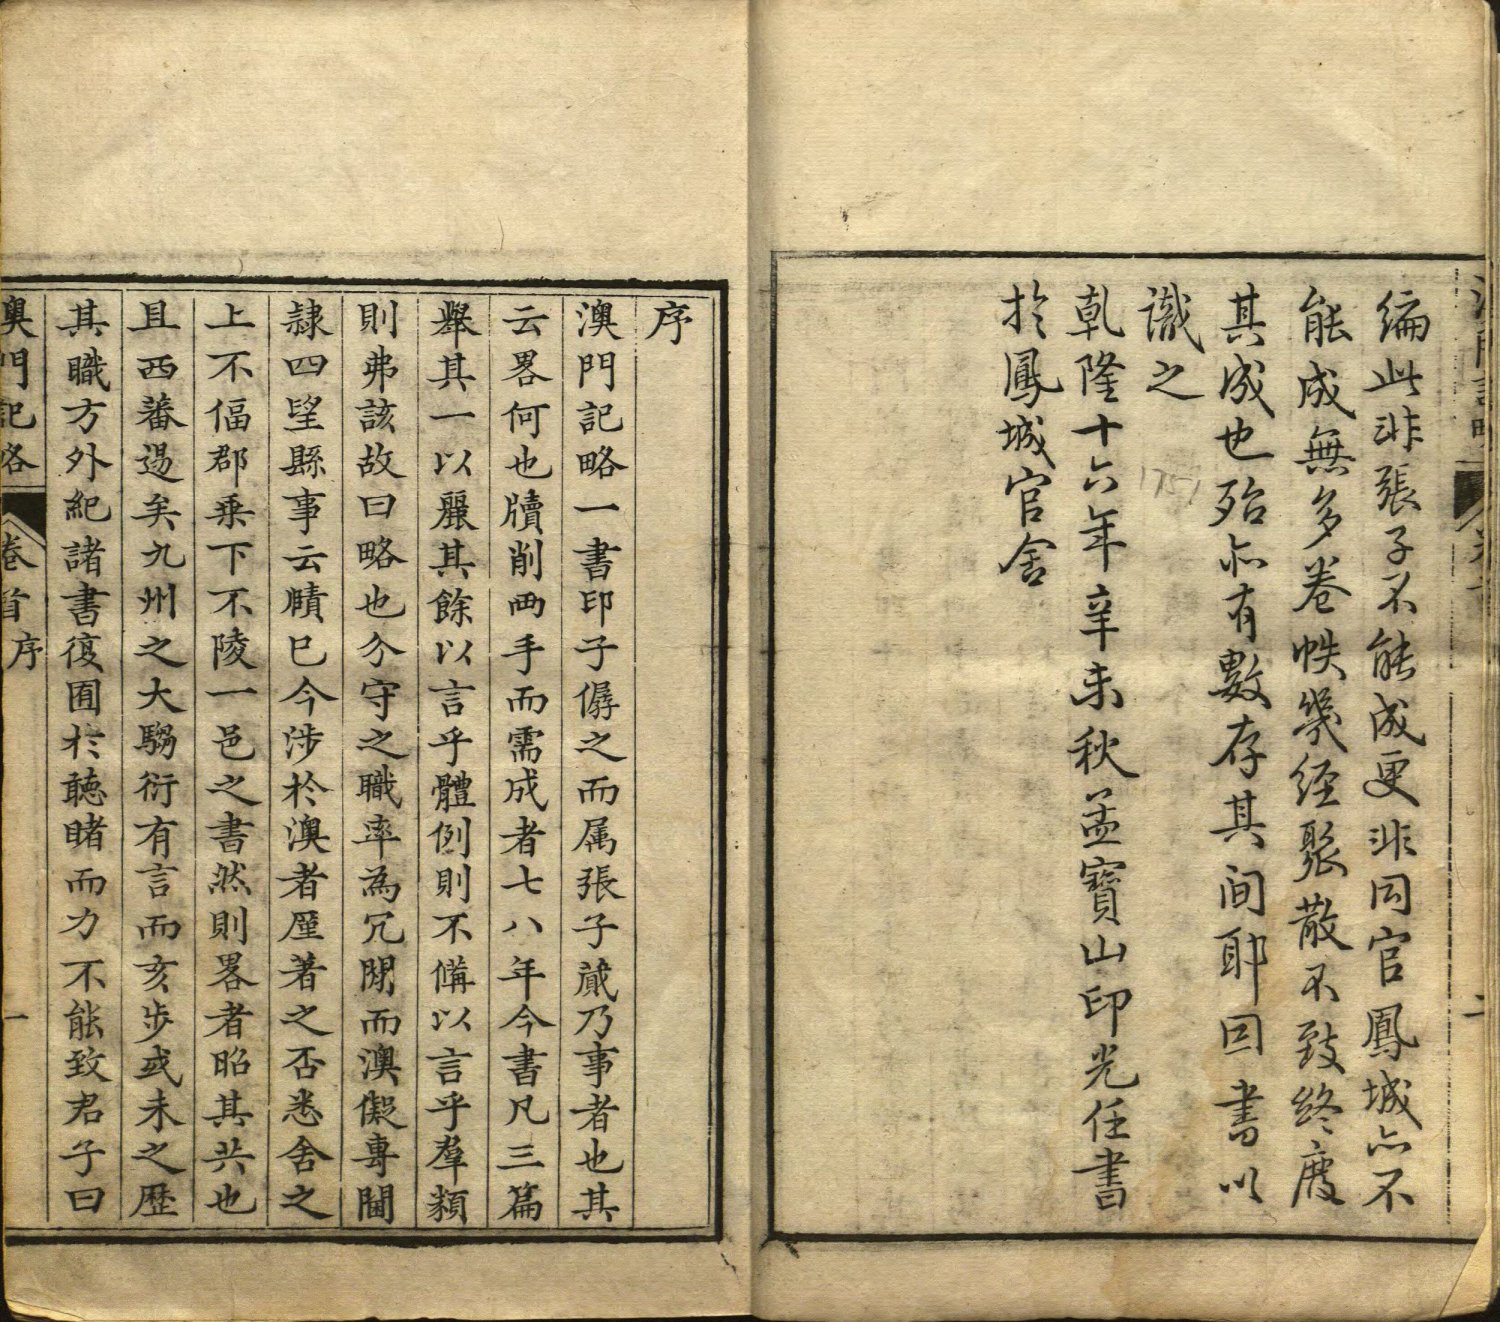 編此非張子不能成更非同官鳳城亦不
能成無多卷帙幾經聚散不致終廢
其成也殆亦有數存其间耶因書以
識之
乾隆十六年辛未秋孟寶山印光任書
於鳳城官舍
1751
序
澳門記略一書印子僝之而属張子蕆乃事者也其
云畧何也牘削兩手而需成者七八年今書凡三篇
舉其一以麗其餘以言乎體例則不備以言乎羣類
則弗該故曰略也分守之職率為冗閒而澳儗專閫
隷四望縣事云賾巳今涉於澳者厪著之否悉舍之
上不偪郡乗下不陵一邑之書然則畧者昭其共也
且西蕃逷矣九州之大騶衍有言而亥步或未之歷
其職方外紀諸書復囿於聽睹而力不能致君子曰
奥門記略 卷首序 一